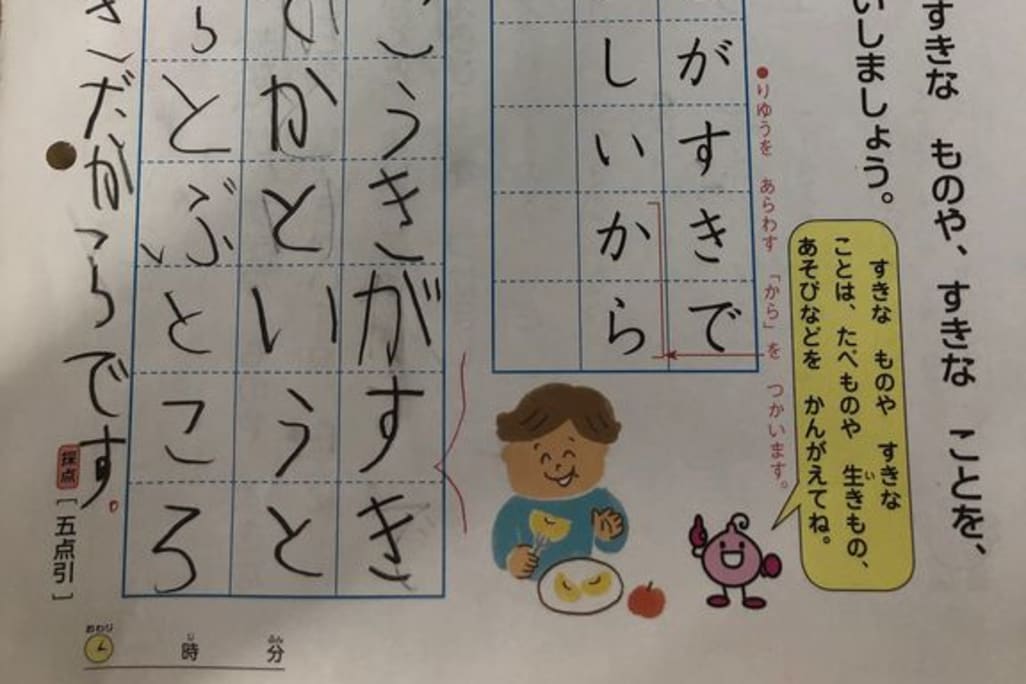 すきな ものや、すきな ことを、
いしましょう。
すきな ものや すきな
ことは、たべものや 生きもの、
い
あそびなどを かんがえてね。
●りゆうを あらわす 「から」を つかいます。
がすきで
しいから
うきがすき
かというと
らとぶところ
だからです。
採点
[五点引]
おわり
時
じ
分
ふん